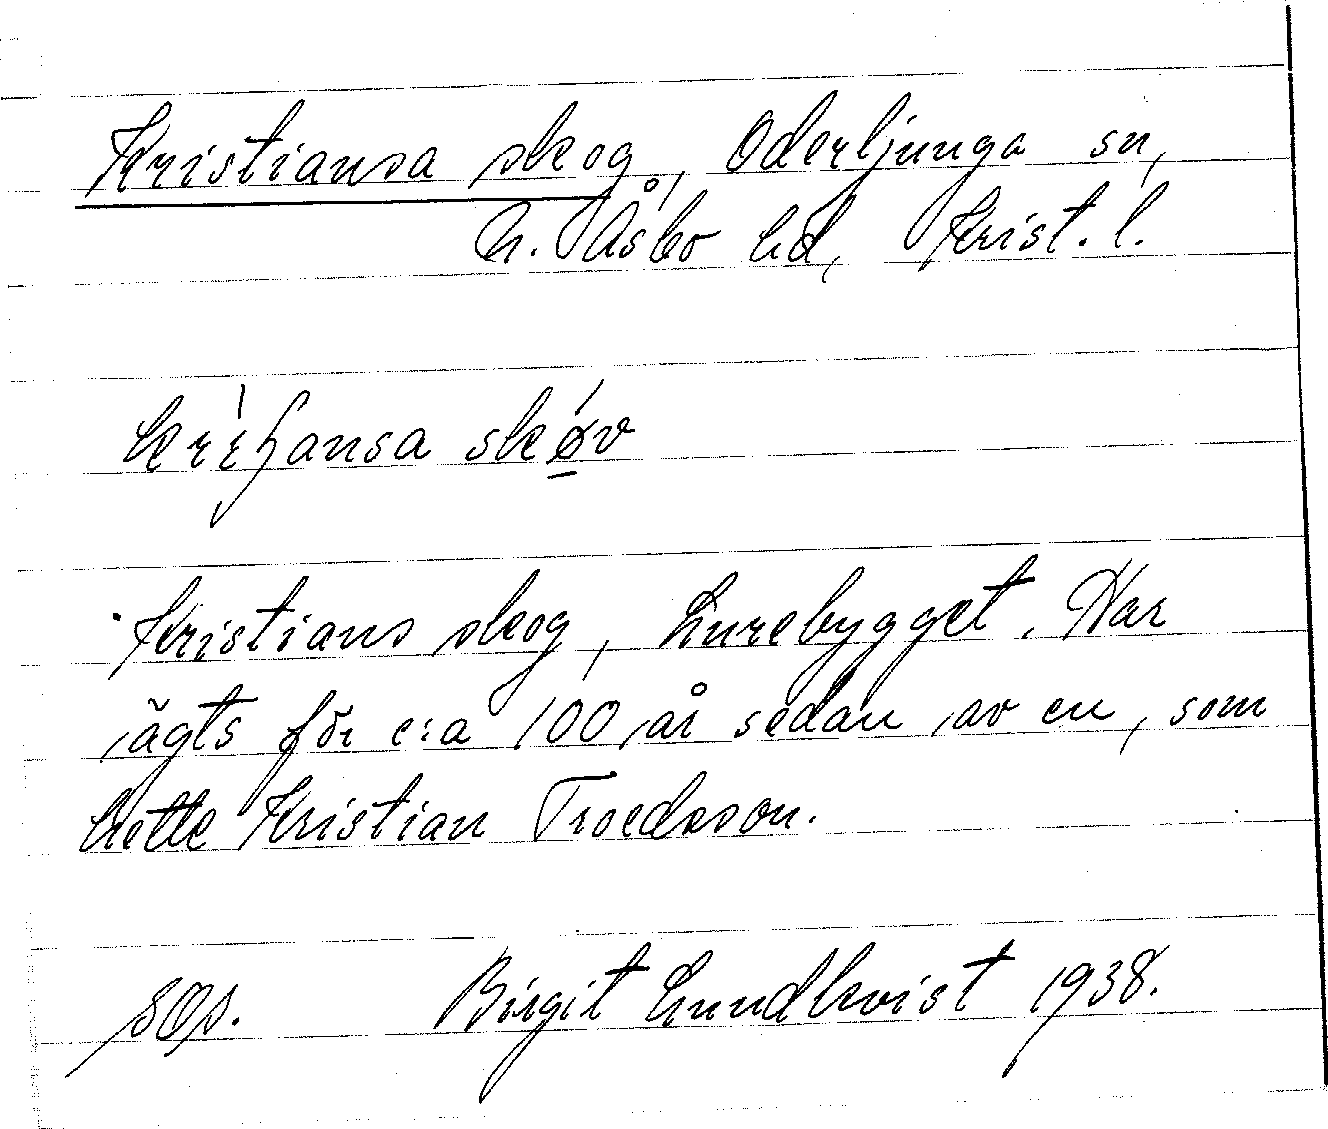 Kristiansa skog, Oderljunga sn,
N. Åsbo hd, Krist. l.
skøv
Kristians skog, Lurebygget. Har
ägts för c:a 100 år sedan av en, som
hette Kristian Troedsson.
sgs. Birgit Lundkvist 1938.